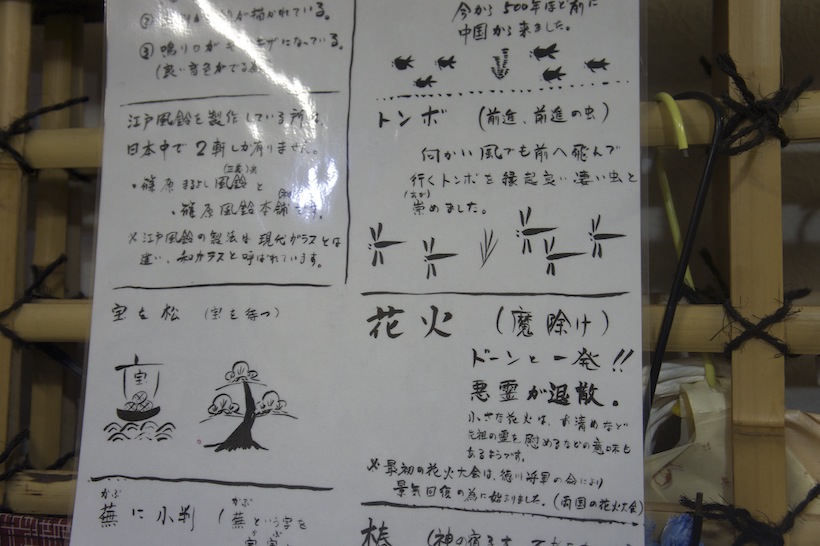 が描かれている。
③ 鳴り口がギザギザになっている。
(良い音色がでるため)
江戸風鈴を製作している所は、
日本中で2軒しか有りません。
・篠原まるよし風鈴と
・篠原風鈴本舗です。
※江戸風鈴の製法は現代ガラスとは
違い、和ガラスと呼ばれています。
宝を松 (宝を待つ)
宝
かぶ
蕪に小判
かぶ
(蕪という字を
今から500年ほど前に
中国から来ました。
トンボ (前近、前進の虫)
向かい風でも前へ飛んで
行くトンボを縁起良い凄い虫と
(あが)
崇めました。
花火 (魔除け)
ドーンと一発!!
悪霊が退散。
小さな花火は、お清めなど
先祖の霊を慰めるなどの意味も
あるようです。
※最初の花火大会は、徳川将軍の命により
景気回復の為に始まりました。(両国の花火大会)
(神の宿る木